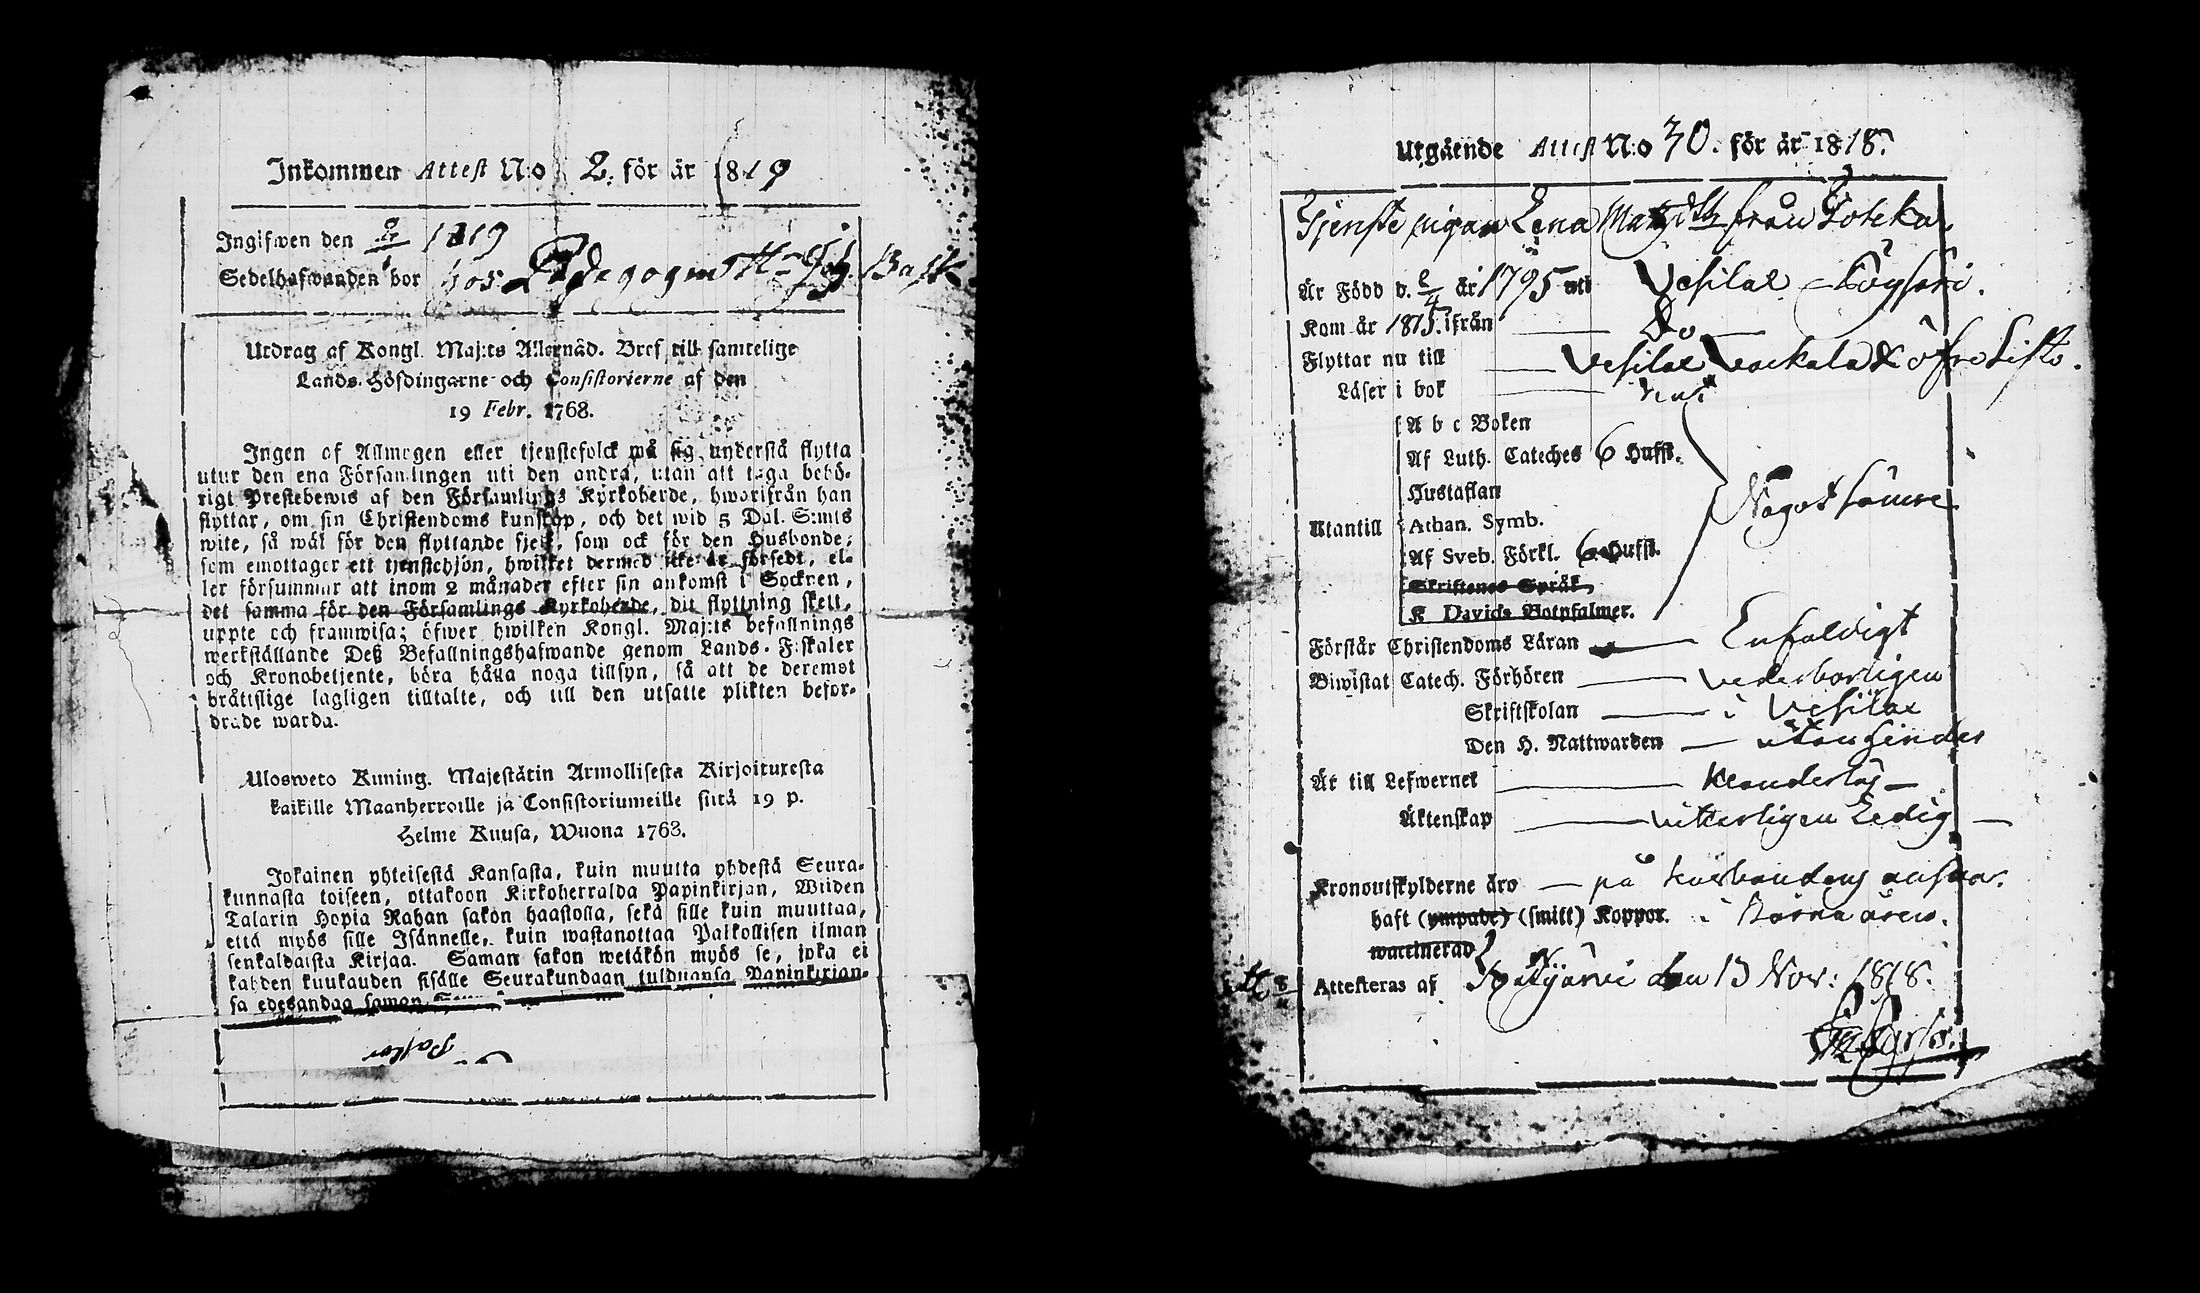 Inkommen Attest N:o 2. för år 1819
Ingifwen den 1819
Sedelhafwanden bor hos
Utdrag af Kongl. Maj:ts Allernåd. Bref till samtelige
Lands-Höfdingarne och Consistorierne af den
19 Febr. 1768.
Ingen af Allmogen eller tjenstefolck må sig understå flytta
utur den ena Församlingen uti den andra, utan att taga behö-
rigt Prestebewis af den Församlings Kyrkoherde, hwarifrån han
flyttar, om sin Christendoms kunskap, och det wid 5 Dal. S:mts
wite, så wäl för den flyttande sjelf, som ock för den Husbonde,
som emottager ett tjenstehjon, hwilket dermed icke är försedt, el-
ler försummar att inom 2 månader efter sin ankomst i Socknen,
det samma för den Församlings Kyrkoherde, dit flyttning skett,
uppte och framwisa; öfwer hwilken Kongl. Maj:ts befallnings
werkställande Deß Befallningshafwande genom Lands-Fiskaler
och Kronobetjente, böra hålla noga tillsyn, så att de deremot
bråttslige lagligen tilltalte, och till den utsatte plikten befor-
drade warda.
Ulosweto Kuning. Majestätin Armollisesta Kirjoituxesta
kaikille Maanherroille ja Consistoriumeille siitä 19 p.
Helme Kuusa, Wuona 1768.
Jokainen yhteisestä Kansasta, kuin muutta yhdestä Seura-
kunnasta toiseen, ottakoon Kirkoherralda Papinkirjan, Wiiden
Talarin Hopia Rahan sakon haastolla, sekä sille kuin muuttaa,
että myös sille Isännelle, kuin wastanottaa Palkollisen ilman
senkaldaista Kirjaa. Saman sakon wetäkön myös se, joka ei
kahden kuukauden sisälle Seurakundaan tulduansa Papinkirjan-
sa edesandaa saman
Utgående Attest N:o 30. för år 1818.
Tjenste pigan Lena Matsdtr från
Är Född d. år 1795 uti Vesilax
Kom år 1815. ifrån Do
Flyttar nu till Vesilax
Läser i bok
A b c Boken
Af Luth. Cateches 6 Hufst.
Hustaflan
Utantill Athan. Symb. Något sämre
Af Sveb. Förkl. 6 Hufst.
Skriftenes Språk
K Davids Botpsalmer.
Förstår Christendoms Läran Enfaldigt
Biwistat Catech. Förhören vederbörligen
Skriftskolan i Vesilax
Den H. Nattwarden utan hinder
Är till Lefwernet klanderlös
Äktenskap vitterligen Ledig
Kronoutskylderne äro på husbondens ansvar.
haft (ympade) (smitt) Koppor. i Barna åren.
waccinerad
Attesteras af den 13 Nov: 1818.